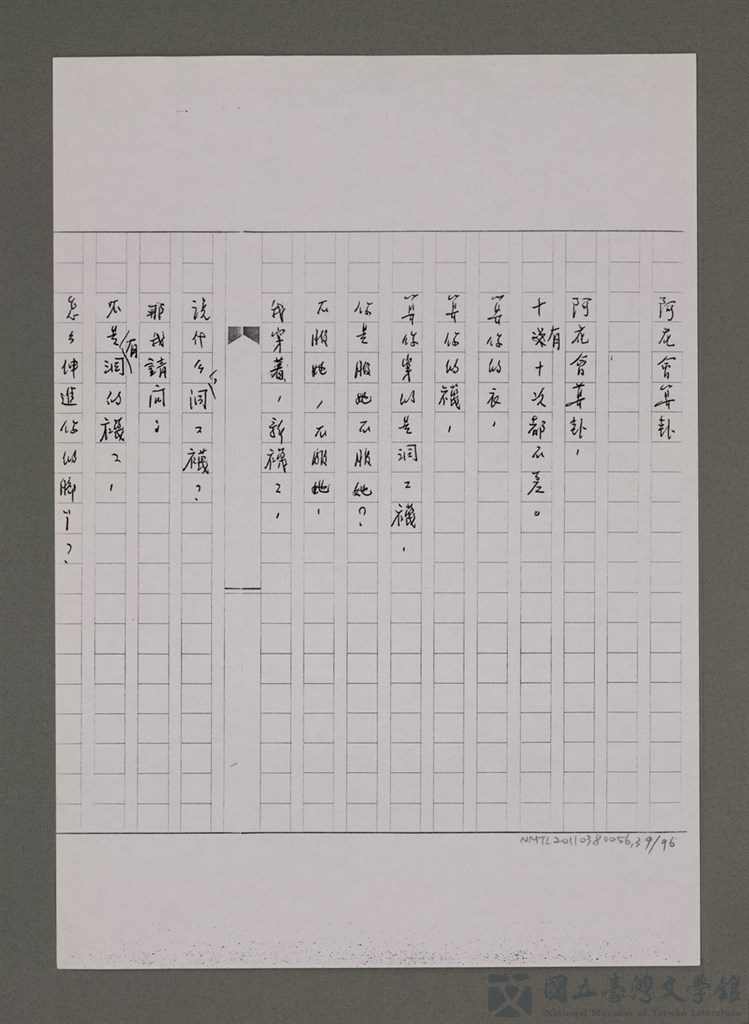 阿花會算卦
阿花會算卦，
十次有十次都不差。
算你的衣，
算你的襪，
算你穿的是洞洞襪，
你是服她不服她？
不服她，不服她，
我穿著，新襪子，
說什么洞洞襪？
那我請问：
不是有洞的襪子，
怎么伸進你的脚丫？
NMTL20110380056,39/96
國立臺灣文學館
National Museum of Taiwan Literature